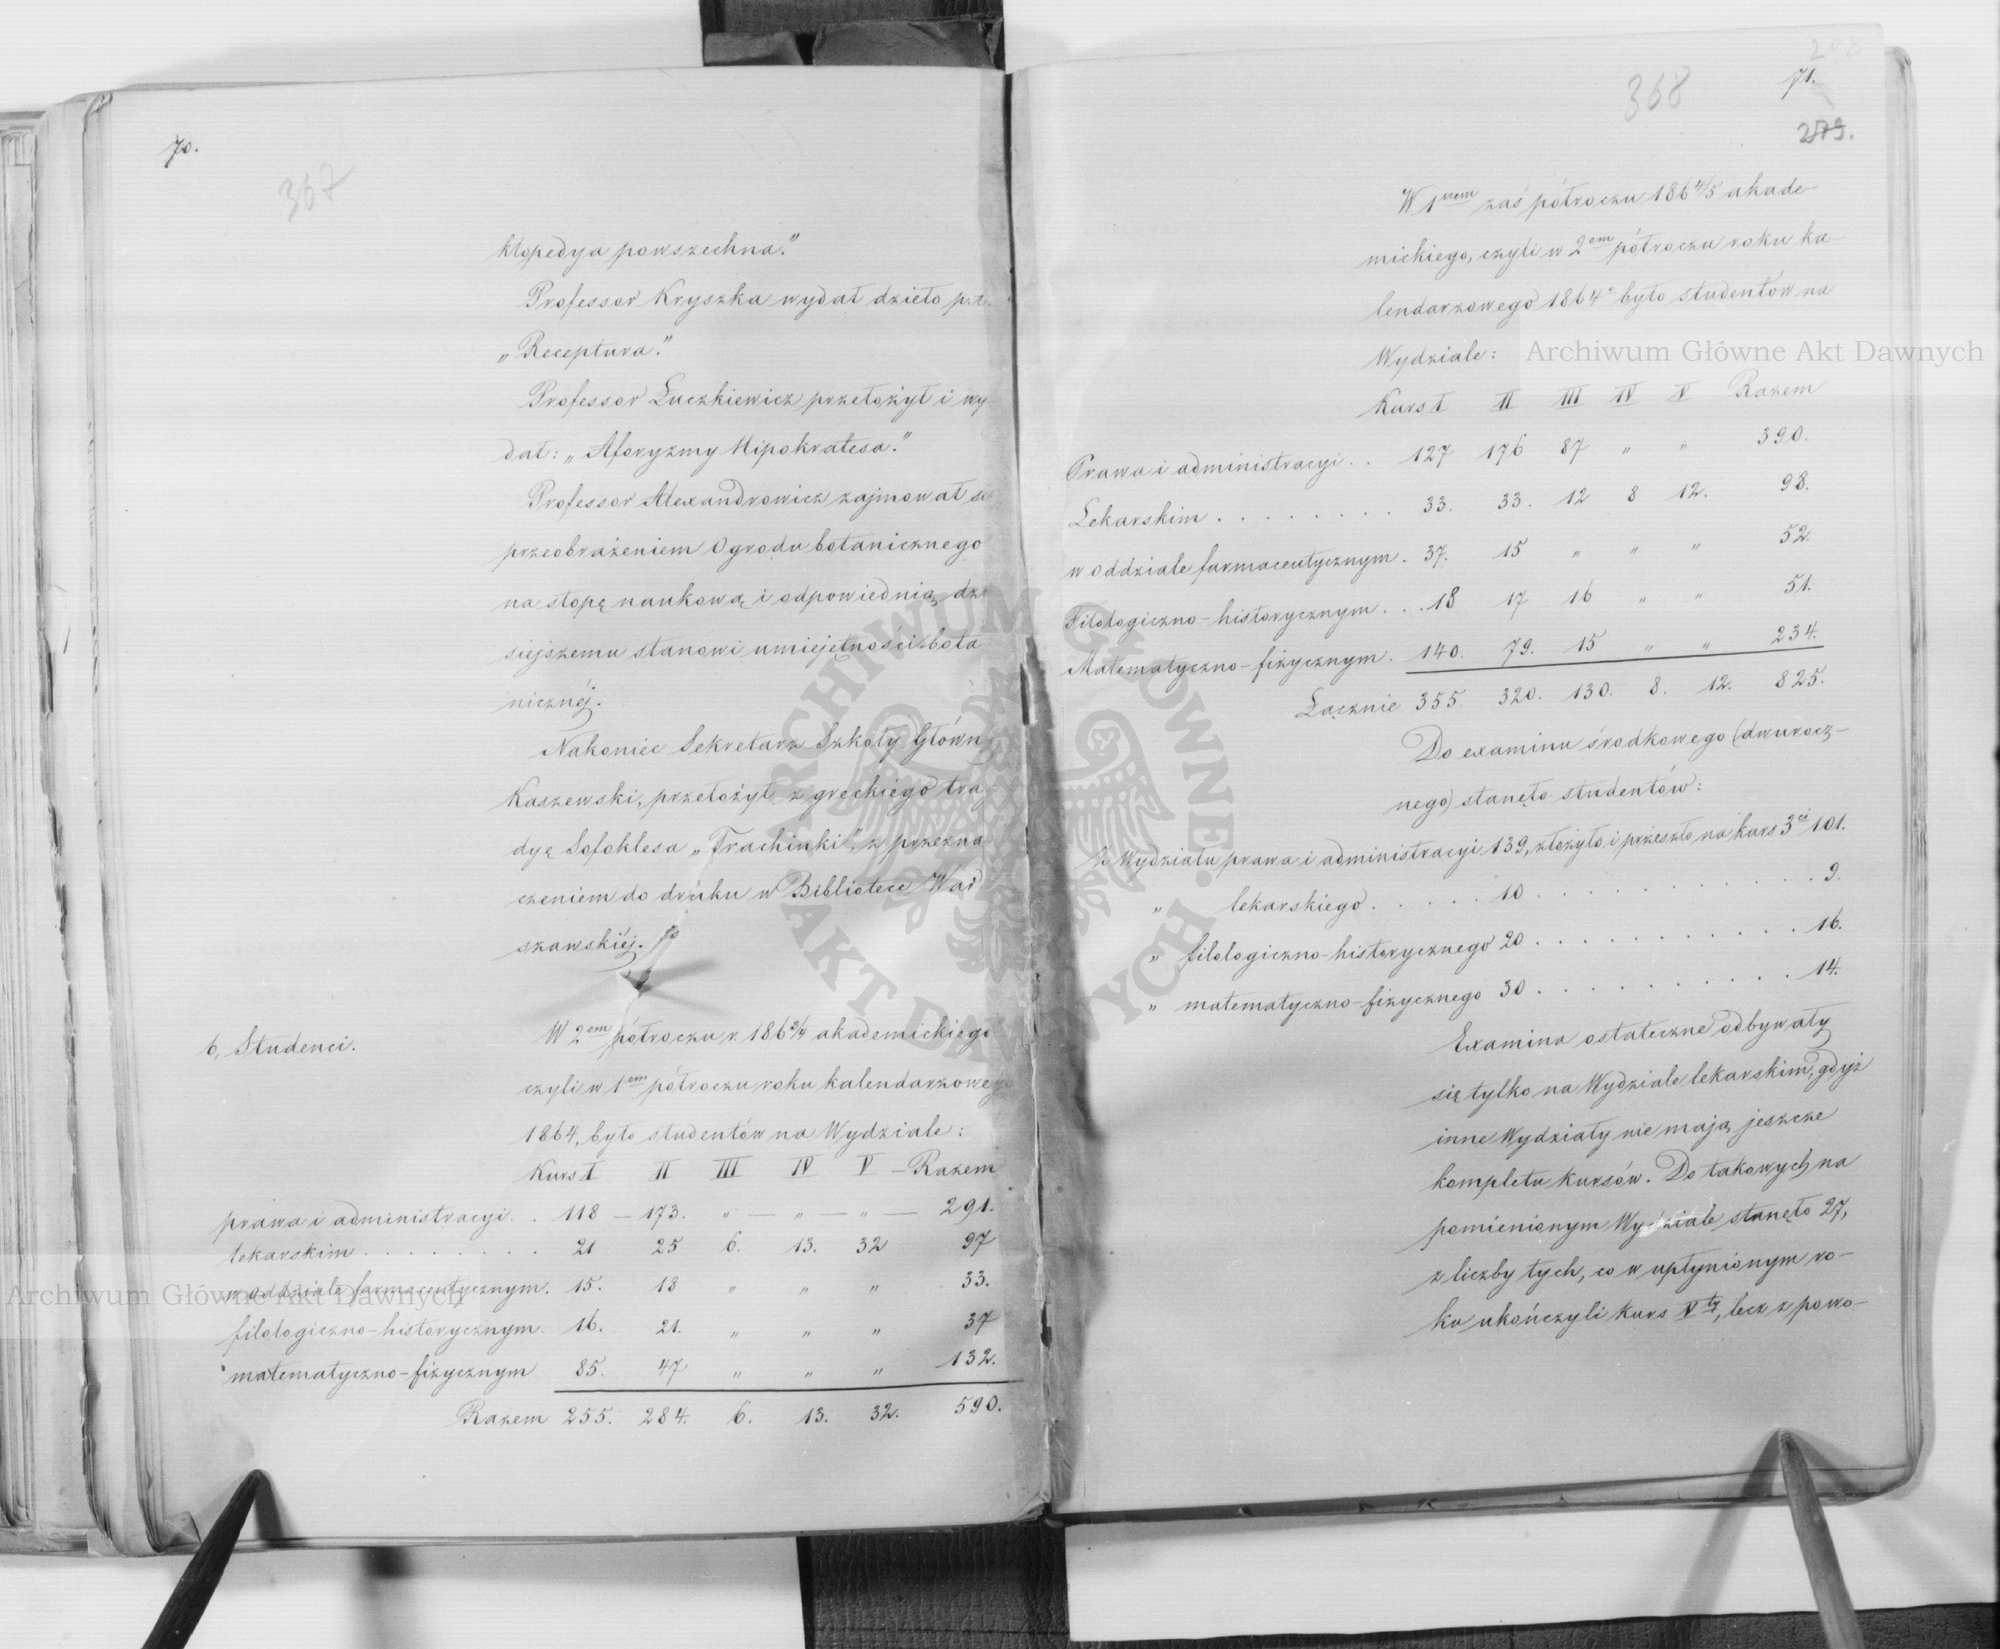 70.
367
kłopedya powszechna."
Professor Kryszka wydał dzieło p.t.
„Receptura."
Professor Łuczkiewicz przełożył i wy-
dał: „Aforyzmy Hipokratesa."
Professor Alexandrowicz zajmował się
przeobrażeniem Ogrodu botanicznego
na stopę naukową i odpowiednią dzi
siejszemu stanowi umiejętności bota
nicznéj.
Nakoniec Sekretarz Szkoły Główn
Kaszewski, przełożył z greckiego tra
dyę Sofoklesa „Trachinki", z przezna
czeniem do druku w Bibliotece War
szawskiéj.
6. Studenci.
W 2em półroczu r. 1863/4 akademickiego
czyli w 1em półroczu roku kalendarzowego
1864, było studentów na Wydziale:
Kurs I II III IV V – Razem
prawa i administracyi . . 118 – 173. „ – „ – „ – 291.
lekarskim . . . . . . . . 21 25 6. 13. 32 97
w oddziale farmaceutycznym. 15. 18 „ „ „ 33.
filologiczno-historycznym. 16. 21. „ „ „ 37
matematyczno-fizycznym 85. 47 „ „ „ 132.
Razem 255. 284. 6. 13. 32. 590.
368
71.
279.
W 1wszem zaś półroczu 1864/5 akade-
mickiego, czyli w 2em półroczu roku ka-
lendarzowego 1864o było studentów na
Wydziale:
Kurs I II III IV V Razem
Prawa i administracyi . . 127 176 87 „ „ 390.
Lekarskim . . . . . . . . 33. 33. 12 8 12. 98.
w oddziale farmaceutycznym . 37. 15 „ „ „ 52.
Filologiczno-historycznym . . . 18 17 16 „ „ 51.
Matematyczno-fizycznym . 140. 79. 15 „ „ 234.
Łącznie 355. 320. 130. 8. 12. 825.
Do examinu środkowego (dwurocz-
nego) stanęło studentów:
Z Wydziału prawa i administracyi 139, złożyło i przeszło na kurs 3ci 101.
„ lekarskiego . . . . . 10 . . . . . . . . . . . 9.
„ filologiczno-historycznego 20 . . . . . . . . . . . 16.
„ matematyczno-fizycznego 30 . . . . . . . . . . 14.
Examina ostateczne odbywały
się tylko na Wydziale lekarskim, gdyż
inne Wydziały nie mają jeszcze
kompletu kursów. Do takowych na
pomienionym Wydziale stanęło 27,
z liczby tych, co w upłynionym ro-
ku ukończyli kurs Vty, lecz z powo-
Archiwum Główne Akt Dawnych
Archiwum Główne Akt Dawnych
ARCHIWUM GŁÓWNE AKT DAWNYCH